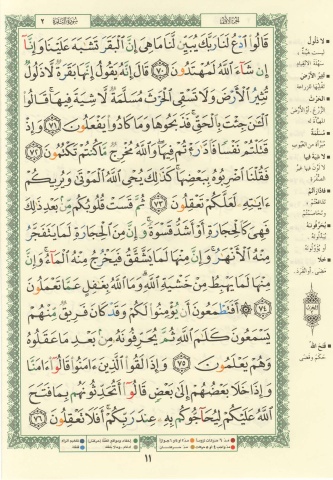 الجزء الأول
سورة البقرة ٢
قَالُوا۟ ٱدْعُ لَنَا رَبَّكَ يُبَيِّن لَّنَا مَا هِىَ إِنَّ ٱلْبَقَرَ تَشَٰبَهَ عَلَيْنَا وَإِنَّآ
إِن شَآءَ ٱللَّهُ لَمُهْتَدُونَ ٧٠ قَالَ إِنَّهُۥ يَقُولُ إِنَّهَا بَقَرَةٌ لَّا ذَلُولٌ
تُثِيرُ ٱلْأَرْضَ وَلَا تَسْقِى ٱلْحَرْثَ مُسَلَّمَةٌ لَّا شِيَةَ فِيهَا قَالُوا۟
ٱلْـَٰٔنَ جِئْتَ بِٱلْحَقِّ فَذَبَحُوهَا وَمَا كَادُوا۟ يَفْعَلُونَ ٧١ وَإِذْ
قَتَلْتُمْ نَفْسًا فَٱدَّٰرَْٰٔتُمْ فِيهَا وَٱللَّهُ مُخْرِجٌ مَّا كُنتُمْ تَكْتُمُونَ ٧٢
فَقُلْنَا ٱضْرِبُوهُ بِبَعْضِهَا كَذَٰلِكَ يُحْىِ ٱللَّهُ ٱلْمَوْتَىٰ وَيُرِيكُمْ
ءَايَٰتِهِۦ لَعَلَّكُمْ تَعْقِلُونَ ٧٣ ثُمَّ قَسَتْ قُلُوبُكُم مِّنۢ بَعْدِ ذَٰلِكَ
فَهِىَ كَٱلْحِجَارَةِ أَوْ أَشَدُّ قَسْوَةً وَإِنَّ مِنَ ٱلْحِجَارَةِ لَمَا يَتَفَجَّرُ
مِنْهُ ٱلْأَنْهَٰرُ وَإِنَّ مِنْهَا لَمَا يَشَّقَّقُ فَيَخْرُجُ مِنْهُ ٱلْمَآءُ وَإِنَّ
مِنْهَا لَمَا يَهْبِطُ مِنْ خَشْيَةِ ٱللَّهِ وَمَا ٱللَّهُ بِغَٰفِلٍ عَمَّا تَعْمَلُونَ
٧٤ أَفَتَطْمَعُونَ أَن يُؤْمِنُوا۟ لَكُمْ وَقَدْ كَانَ فَرِيقٌ مِّنْهُمْ
يَسْمَعُونَ كَلَٰمَ ٱللَّهِ ثُمَّ يُحَرِّفُونَهُۥ مِنۢ بَعْدِ مَا عَقَلُوهُ
وَهُمْ يَعْلَمُونَ ٧٥ وَإِذَا لَقُوا۟ ٱلَّذِينَ ءَامَنُوا۟ قَالُوٓا۟ ءَامَنَّا
وَإِذَا خَلَا بَعْضُهُمْ إِلَىٰ بَعْضٍ قَالُوٓا۟ أَتُحَدِّثُونَهُم بِمَا فَتَحَ
ٱللَّهُ عَلَيْكُمْ لِيُحَآجُّوكُم بِهِۦ عِندَ رَبِّكُمْ أَفَلَا تَعْقِلُونَ ٧٦
لا ذلول
تثير الأرض
الحرث
مسلمة
لا شية فيها
فادارأتم
يحرفونه
خلا
فتح الله
١١